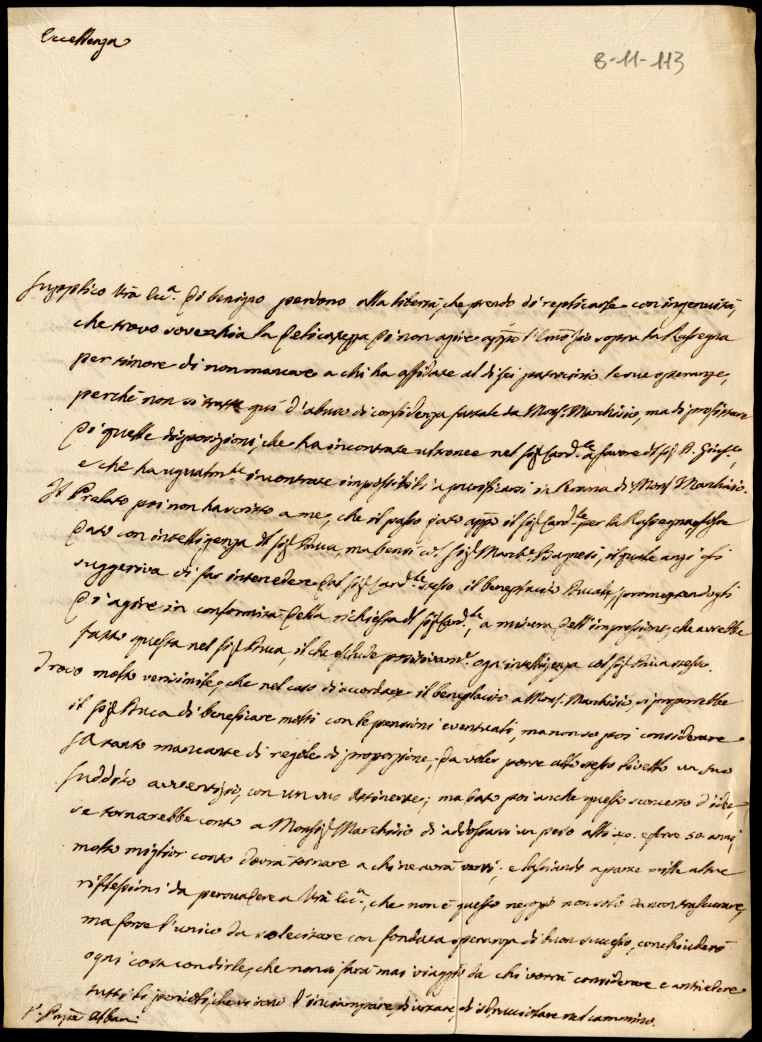 Eccellenza
8-11-113
Supplico Vrã Ecc.ª di benigno perdono alla libertà, che prendo di replicarle con ingenuità,
che trovo soverchia la delicatezza di non agire app̃o l'Emõ Zio sopra la Rassegna
per timore di non mancare a chi ha affidate al di lei patrocinio le sue speranze,
perché non si tratta quì d'abuso di confidenza fattale da Mons.r Marchisio, ma di profittare
di quelle disposizioni, che ha incontrate ultronee nel Sig.r Card.le a favore del Sig.r A.
e che ha ugualm.te incontrate impossibili a purificarsi in Persona di Mons.r Marchisio.
Il Prelato poi non ha scritto a me, che il passo fatto app̃o il Sig.r Card.le per la Rassegna fosse
fatto con intelligenza del Sig.r Duca, ma bensì col Sig.r March.e Bagnesi, il quale anzi
suggeriva di far intercedere dal Sig.r Card.le stesso il beneplacito Ducale, promettendogli
di agire in conformità della richiesta del Sig.r Card.le, a misura dell'impressione, che avrebbe
fatto questa nel Sig.r Duca, il che esclude positivam.te ogni intelligenza col Sig.r Duca stesso.
Trovo molto verisimile, che nel caso di accordare il beneplacito a Mons.r Marchisio, si proporrebbe
il Sig.r Duca di beneficare molti con le pensioni eventuali, ma non so poi considerare
sì tanto mancante di regole di proporzione, da voler porre allo stesso livello un suo
suddito avventizio, con un suo attinente; ma dato poi anche questo sconcerto d'idee,
se tornarebbe conto a Monsig.r Marchisio di addossarsi un peso
molto miglior conto dovrà tornare a chi ne avrà venti; e lasciando a parte mille altre
riflessioni da persuadere a Vrã Ecc.ª, che non è questo negozio non solo da non trascurare,
ma forse l'unico da solecitare con fondata speranza di buon successo, conchiuderò
ogni cosa con dirle, che non si farà mai viaggio da chi vorrà considerare e antivedere
tutti li pericoli, che vi sono d'inciampare, di urtare, di sdrucciolare nel cammino.
Albani